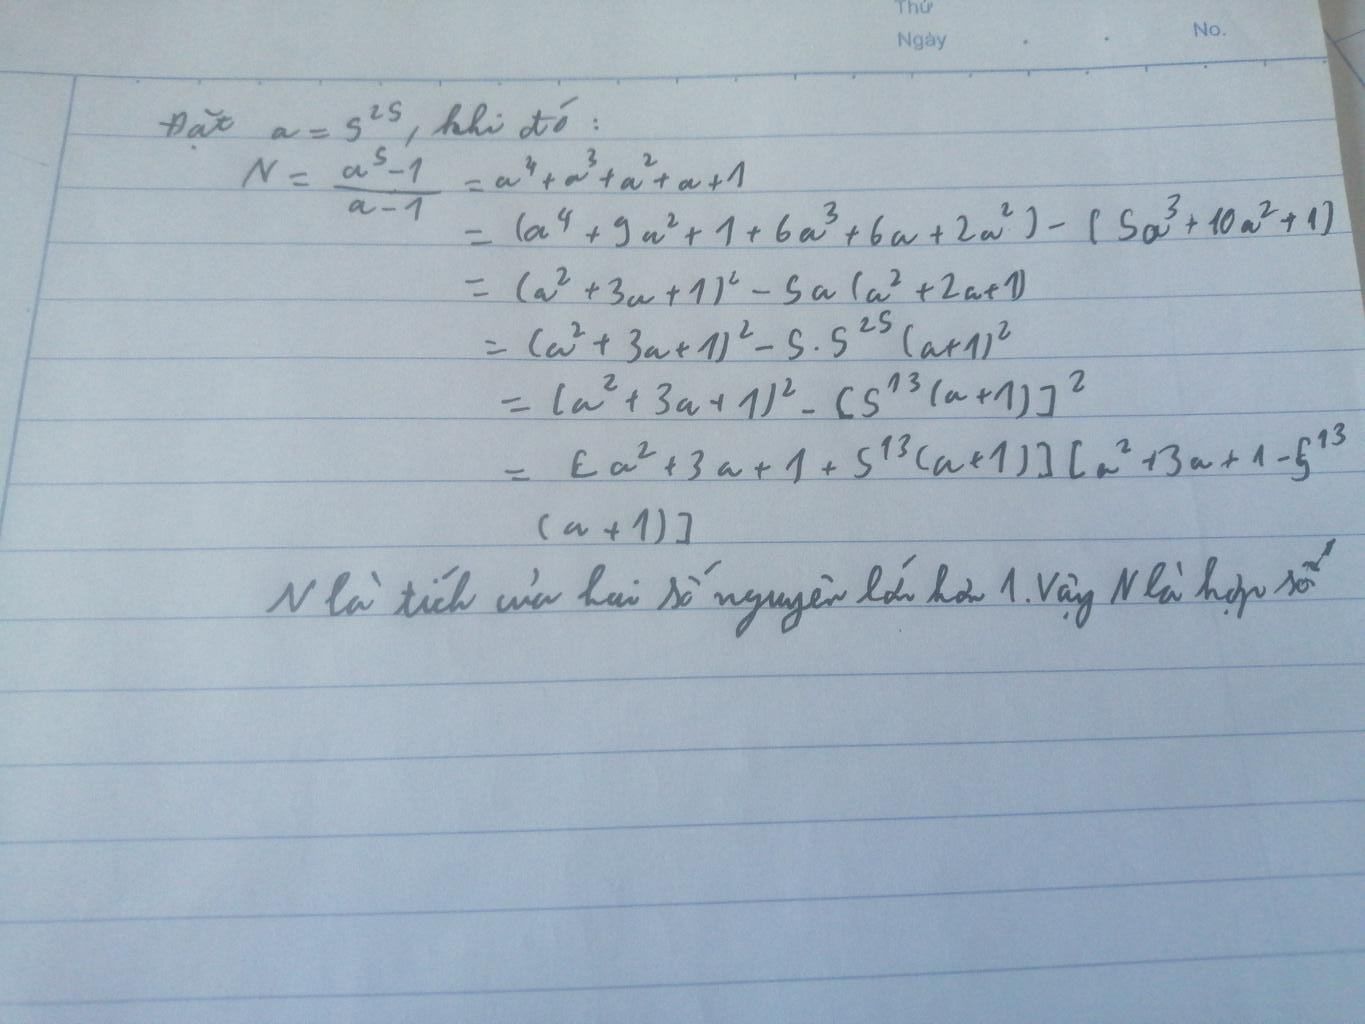 Thứ
Ngày . . No.
Đặt a = 5^25, khi đó :
N = (a^5 - 1)/(a - 1) = a^4 + a^3 + a^2 + a + 1
= (a^4 + 9a^2 + 1 + 6a^3 + 6a + 2a^2) - (5a^3 + 10a^2 + 1)
= (a^2 + 3a + 1)^2 - 5a (a^2 + 2a + 1)
= (a^2 + 3a + 1)^2 - 5.5^25 (a+1)^2
= (a^2 + 3a + 1)^2 - [5^13 (a+1)]^2
= [a^2 + 3a + 1 + 5^13 (a+1)] [a^2 + 3a + 1 - 5^13
(a + 1)]
N là tích của hai số nguyên lớn hơn 1. Vậy N là hợp số